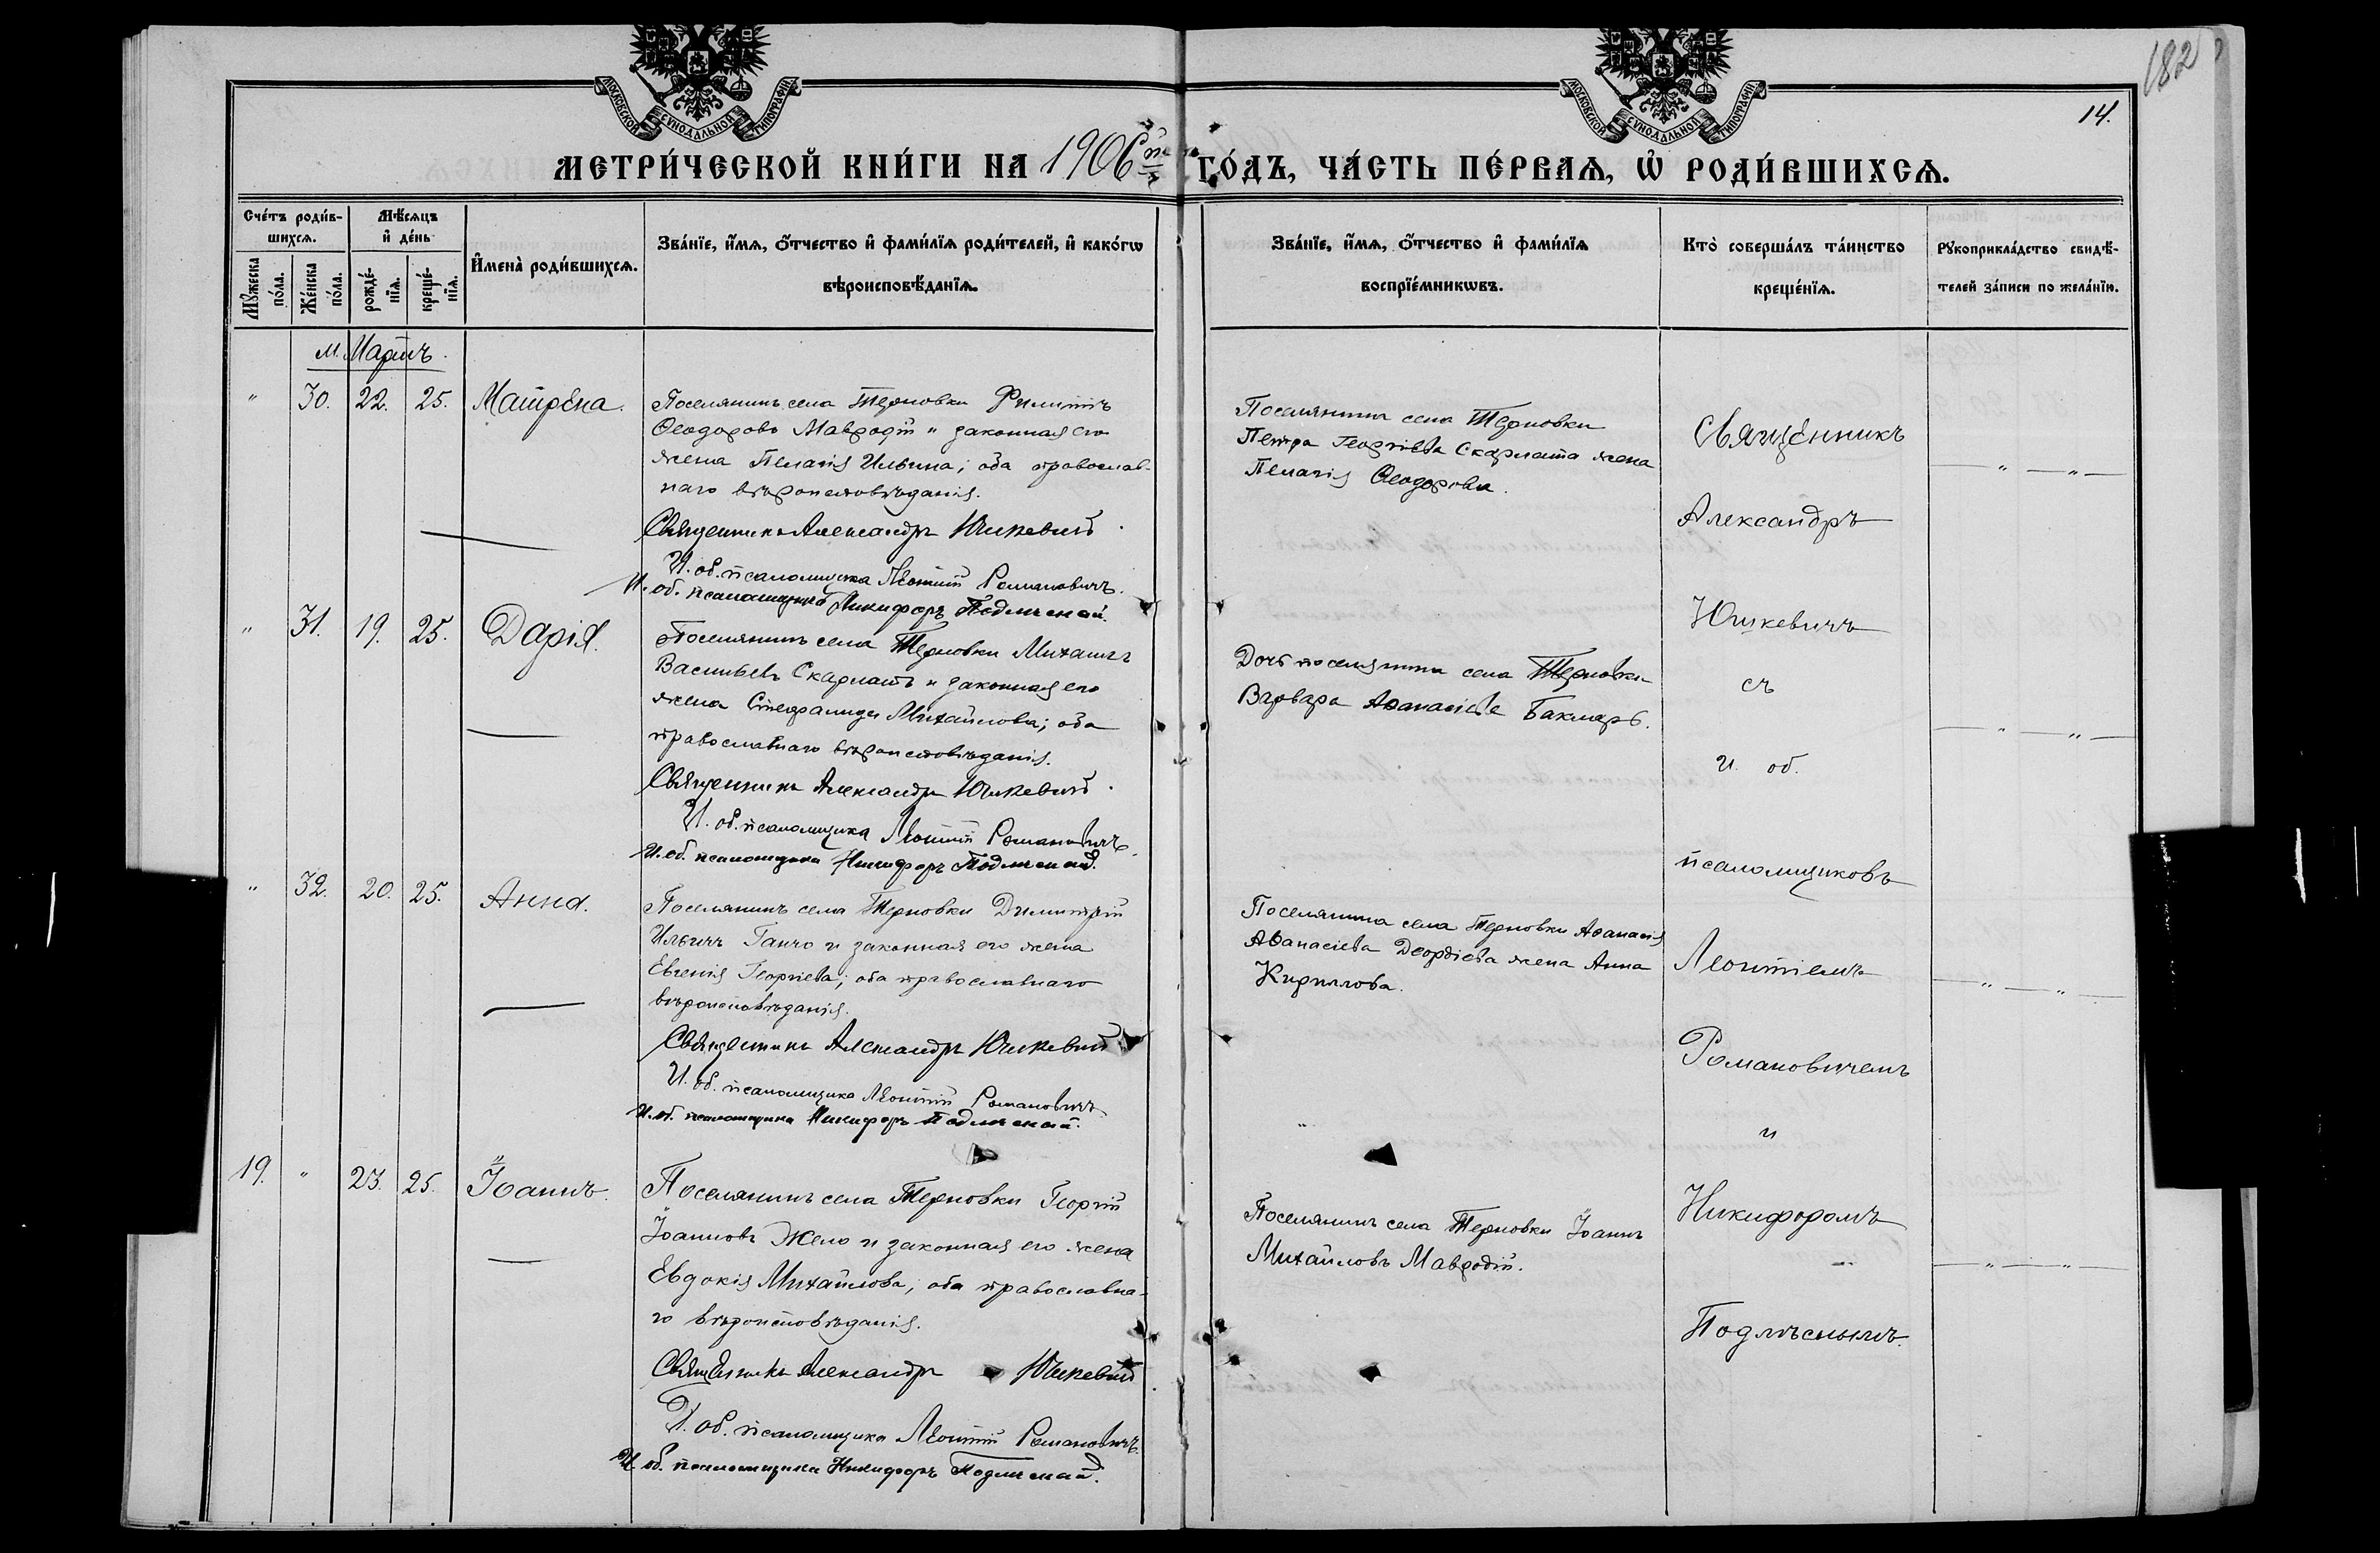 182
14.
МОСКОВСКОЙ СѴНОДАЛЬНОЙ ТИПОГРАФІИ
МОСКОВСКОЙ СѴНОДАЛЬНОЙ ТИПОГРАФІИ
МЕТРИ́ЧЕСКОЙ КНИ́ГИ НА 1906й ГО́ДЪ, ЧА́СТЬ ПЕ́РВАѦ, Ѡ҆ РОДИ́ВШИХСѦ.
Сче́тъ роди́в-
шихсѧ.
Мꙋ́жеска по́ла.
Же́нска по́ла.
Мѣ́сѧцъ
и҆ де́нь
рожде́-
нїѧ.
креще́-
нїѧ.
И҆мена̀ роди́вшихсѧ.
Зва́нїе, и҆́мѧ, ѻ҆́тчество и҆ фами́лїѧ роди́телей, и҆ како́гѡ
вѣроисповѣ́данїѧ.
Зва́нїе, и҆́мѧ, ѻ҆́тчество и҆ фами́лїѧ
воспрїе́мникѡвъ.
Кто̀ соверша́лъ та́инство
креще́нїѧ.
Рꙋкоприкла́дство свидѣ́-
телей за́писи по жела́нїю.
м. Мартъ.
" 30. 22. 25. Матрена.
Поселянинъ села Терновки Филиппъ
Ѳеодоровъ Мавродій и законная его
жена Пелагія Ильина; оба православ-
наго вѣроисповѣданія.
Священникъ Александръ Юшкевичъ.
И. об. псаломщика Леонтій Романовичъ.
И. об. псаломщика Никифоръ Подлѣсный.
Поселянина села Терновки
Петра Георгіева Скарлата жена
Пелагія Ѳеодорова.
" 31. 19. 25. Дарія.
Поселянинъ села Терновки Михаилъ
Васильевъ Скарлатъ и законная его
жена Стефанида Михайлова; оба
православнаго вѣроисповѣданія.
Священникъ Александръ Юшкевичъ.
И. об. псаломщика Леонтій Романовичъ.
И. об. псаломщика Никифоръ Подлѣсный.
Дочь поселянина села Терновки
Варвара Аѳанасіева Бакларъ.
" 32. 20. 25. Анна.
Поселянинъ села Терновки Димитрій
Ильичъ Ганчо и законная его жена
Евгенія Георгіева; оба православнаго
вѣроисповѣданія.
Священникъ Александръ Юшкевичъ
И. об. псаломщика Леонтій Романовичъ
И. об. псаломщика Никифоръ Подлѣсный.
Поселянина села Терновки Аѳанасія
Аѳанасіева Деордіева жена Анна
Кириллова.
19. " 23. 25. Іоаннъ.
Поселянинъ села Терновки Георгій
Іоанновъ Жело и законная его жена
Евдокія Михайлова; оба православна-
го вѣроисповѣданія.
Священникъ Александръ Юшкевичъ
И. об. псаломщика Леонтій Романовичъ.
И. об. псаломщика Никифоръ Подлѣсный.
Поселянинъ села Терновки Іоаннъ
Михайловъ Мавродій.
Священникъ
Александръ
Юшкевичъ
съ
и. об.
псаломщиковъ
Леонтіемъ
Романовичемъ
и
Никифоромъ
Подлѣснымъ.